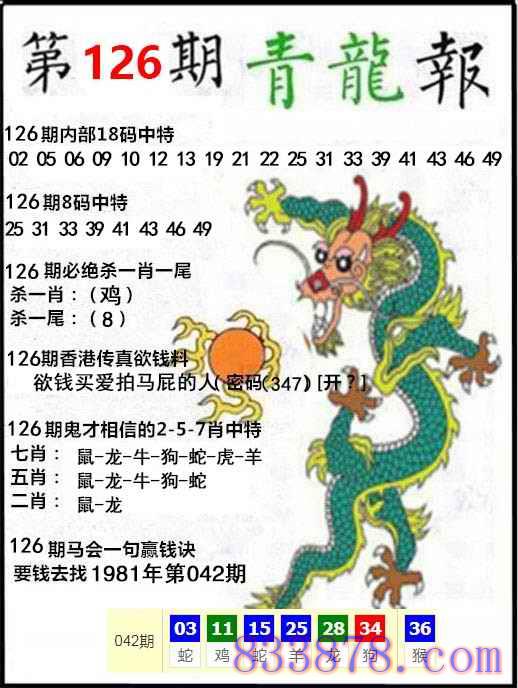 第126期 青龍報
126期内部18码中特
02 05 06 09 10 12 13 19 21 22 25 31 33 39 41 43 46 49
126期8码中特
25 31 33 39 41 43 46 49
126期必绝杀一肖一尾
杀一肖：（鸡）
杀一尾：（8）
126期香港传真欲钱料
欲钱买爱拍马屁的人（密码(347）[开？]
126期鬼才相信的2-5-7肖中特
七肖： 鼠-龙-牛-狗-蛇-虎-羊
五肖： 鼠-龙-牛-狗-蛇
二肖： 鼠-龙
126期马会一句赢钱诀
要钱去找1981年第042期
042期 03 11 15 25 28 34 36
蛇 鸡 蛇 羊 龙 狗 猴
833878.com